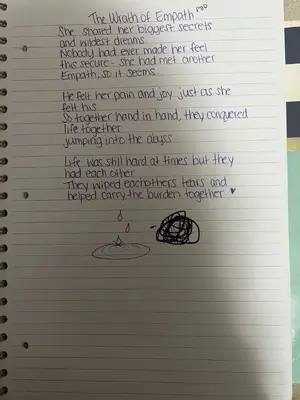 The Wrath of Empath
She shared her biggest secrets
and wildest dreams
Nobody had ever made her feel
this secure - she had met another
Empath, so it seems
He felt her pain and joy just as she
felt his
So together hand in hand, they conquered
life together
jumping into the abyss
Life was still hard at times but they
had each other
They wiped eachothers tears and
helped carry the burden together ♥